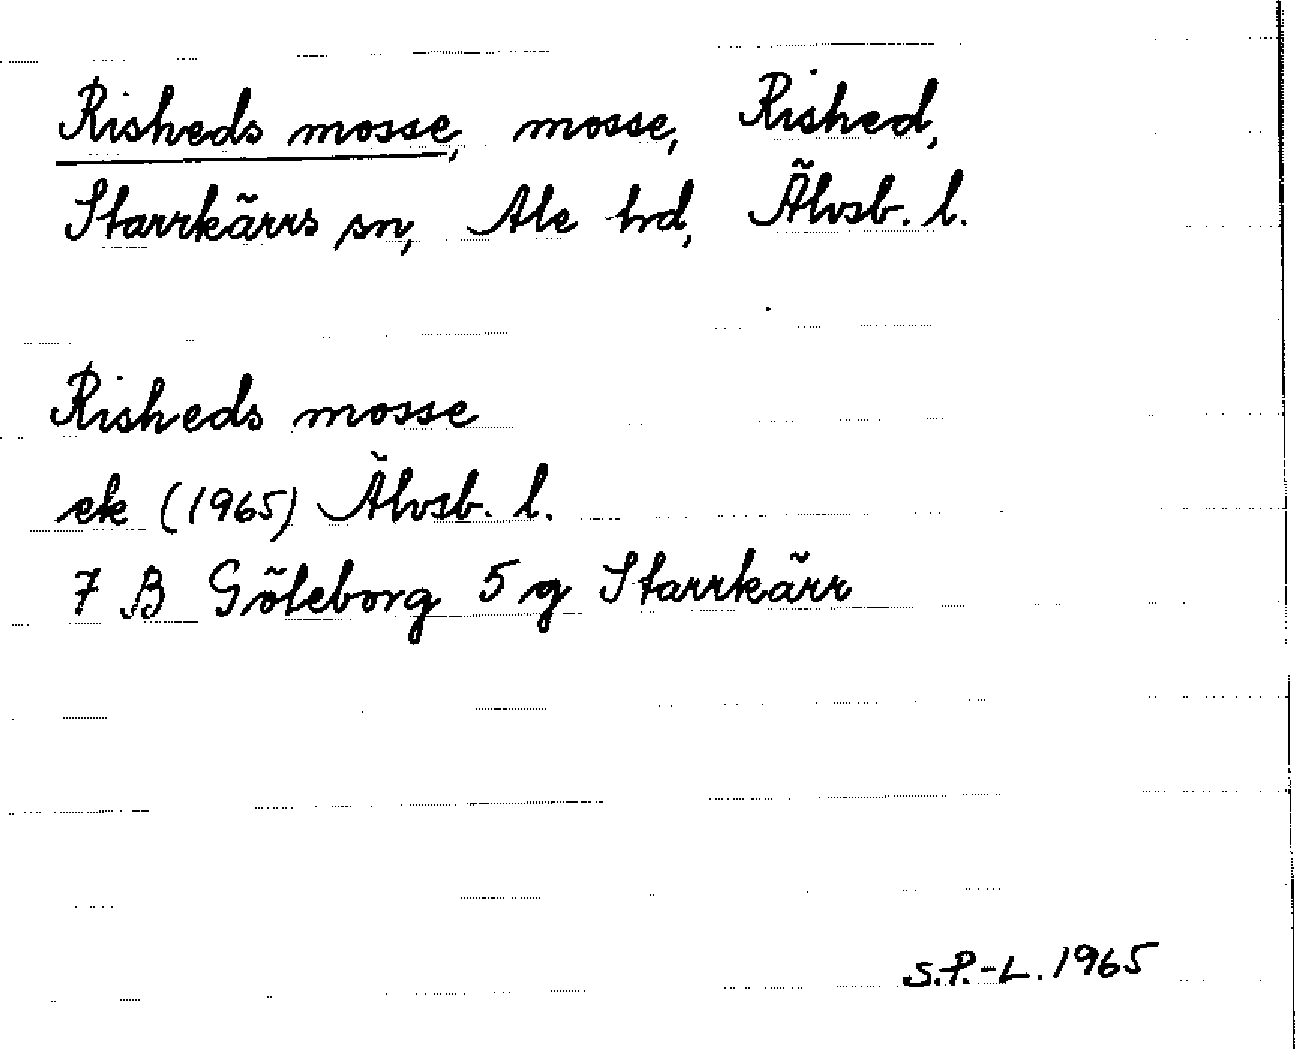 Risheds mosse, mosse, Rished,
Starrkärrs sn, Ale hd, Älvsb. l.
Risheds mosse
ek (1965) Älvsb. l.
7 B Göteborg 5 g Starrkärr
S.P.-L. 1965